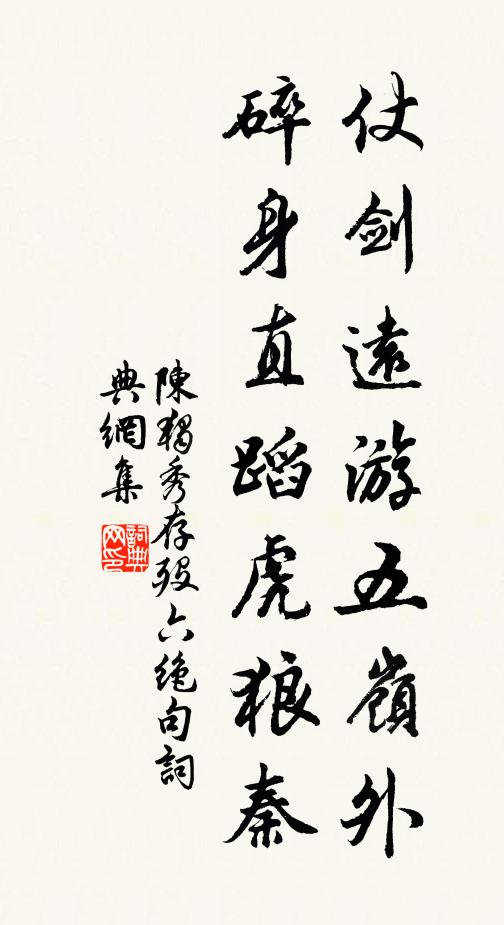 仗剑遠游五嶺外
碎身直蹈虎狼秦
陳獨秀存殁六绝句詞
典網集
詞典网印